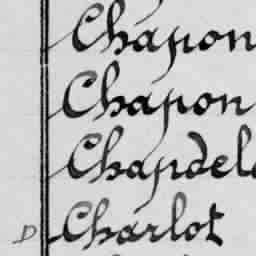 Chapon
Chapon
Chapdel
D Charlot